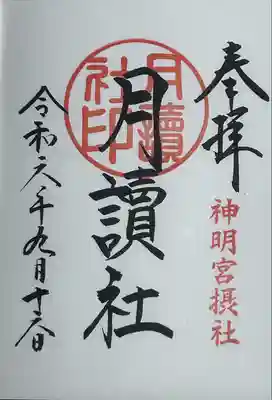 奉拝
神明宮摂社
月讀社
月讀社印
令和六年九月十六日